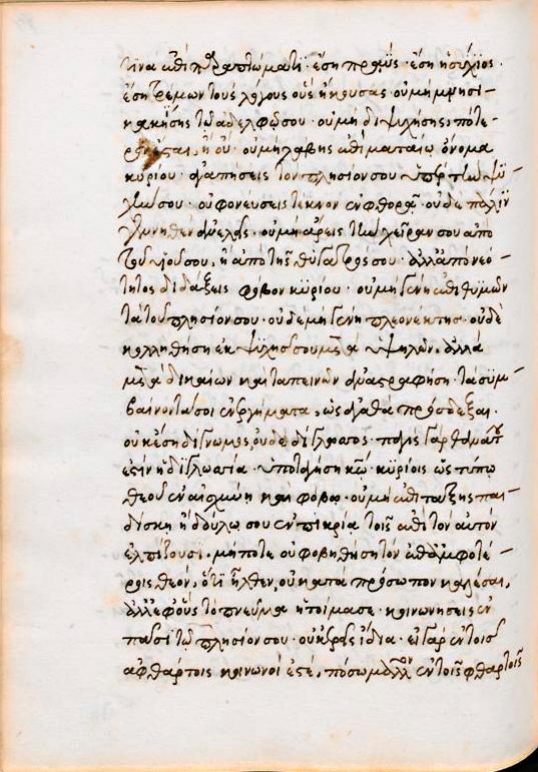 τινὰ ἐπὶ παραπτώματι· ἔση πραΰς· ἔση ἡσύχιος·
ἔση τρέμων τοὺς λόγους οὓς ἤκουσας· οὐ μὴ μνησι-
κακήσης τῶ ἀδελφῶ σου· οὐ μὴ διψυχήσης, πότε-
ρον ἔσται, ἢ οὔ· οὐ μὴ λάβης ἐπὶ ματαίω ὄνομα
κυρίου· ἀγαπήσεις τὸν πλησίον σου ὑπὲρ τὴν ψυ-
χήν σου· οὐ φονεύσεις τέκνον ἐν φθορᾶ· οὐδὲ πάλιν
γεννηθὲν ἀνελεῖς· οὐ μὴ ἄρεις τὴν χεῖραν σου ἀπὸ
τοῦ υἱοῦ σου, ἢ ἀπὸ τῆς θυγατρός σου· ἀλλ' ἀπὸ νεό-
τητος διδάξεις φόβον κυρίου· οὐ μὴ γένη ἐπιθυμῶν
τὰ τοῦ πλησίον σου· οὐδὲ μὴ γένη πλεονέκτης· οὐδὲ
κολληθήση ἐκ ψυχῆς σου μετὰ ὑψηλῶν, ἀλλὰ
μετὰ δικαίων καὶ ταπεινῶν ἀναστραφήση· τὰ συμ-
βαίνοντά σοι ἐνεργήματα, ὡς ἀγαθὰ πρόσδεξαι·
οὐκ ἔση δίγνωμος, οὐδὲ δίγλωσσος· παγὶς γὰρ θανάτου
ἐστὶν ἡ διγλωσσία· ὑποταγήση κυρίω· κυρίοις ὡς τύπω
θεοῦ ἐν αἰσχύνη καὶ φόβω· οὐ μὴ ἐπιτάξης παι-
δίσκη ἢ δούλω σου ἐν πικρία τοῖς ἐπὶ τὸν αὐτὸν
ἐλπίζουσι· μήποτε οὐ φοβηθήση τὸν ἐπ' ἀμφοτέ-
ροις θεόν, ὅτι ἦλθεν, οὐ κατὰ πρόσωπον καλέσαι,
ἀλλ' ἐφ' οὓς τὸ πνεῦμα ἡτοίμασε· κοινωνήσεις ἐν
πᾶσι τῶ πλησίον σου· οὐκ ἐρεῖς ἴδια· εἰ γὰρ ἐν τοῖς
ἀφθάρτοις κοινωνοί ἐστέ, πόσω μᾶλλον ἐν τοῖς φθαρτοῖς